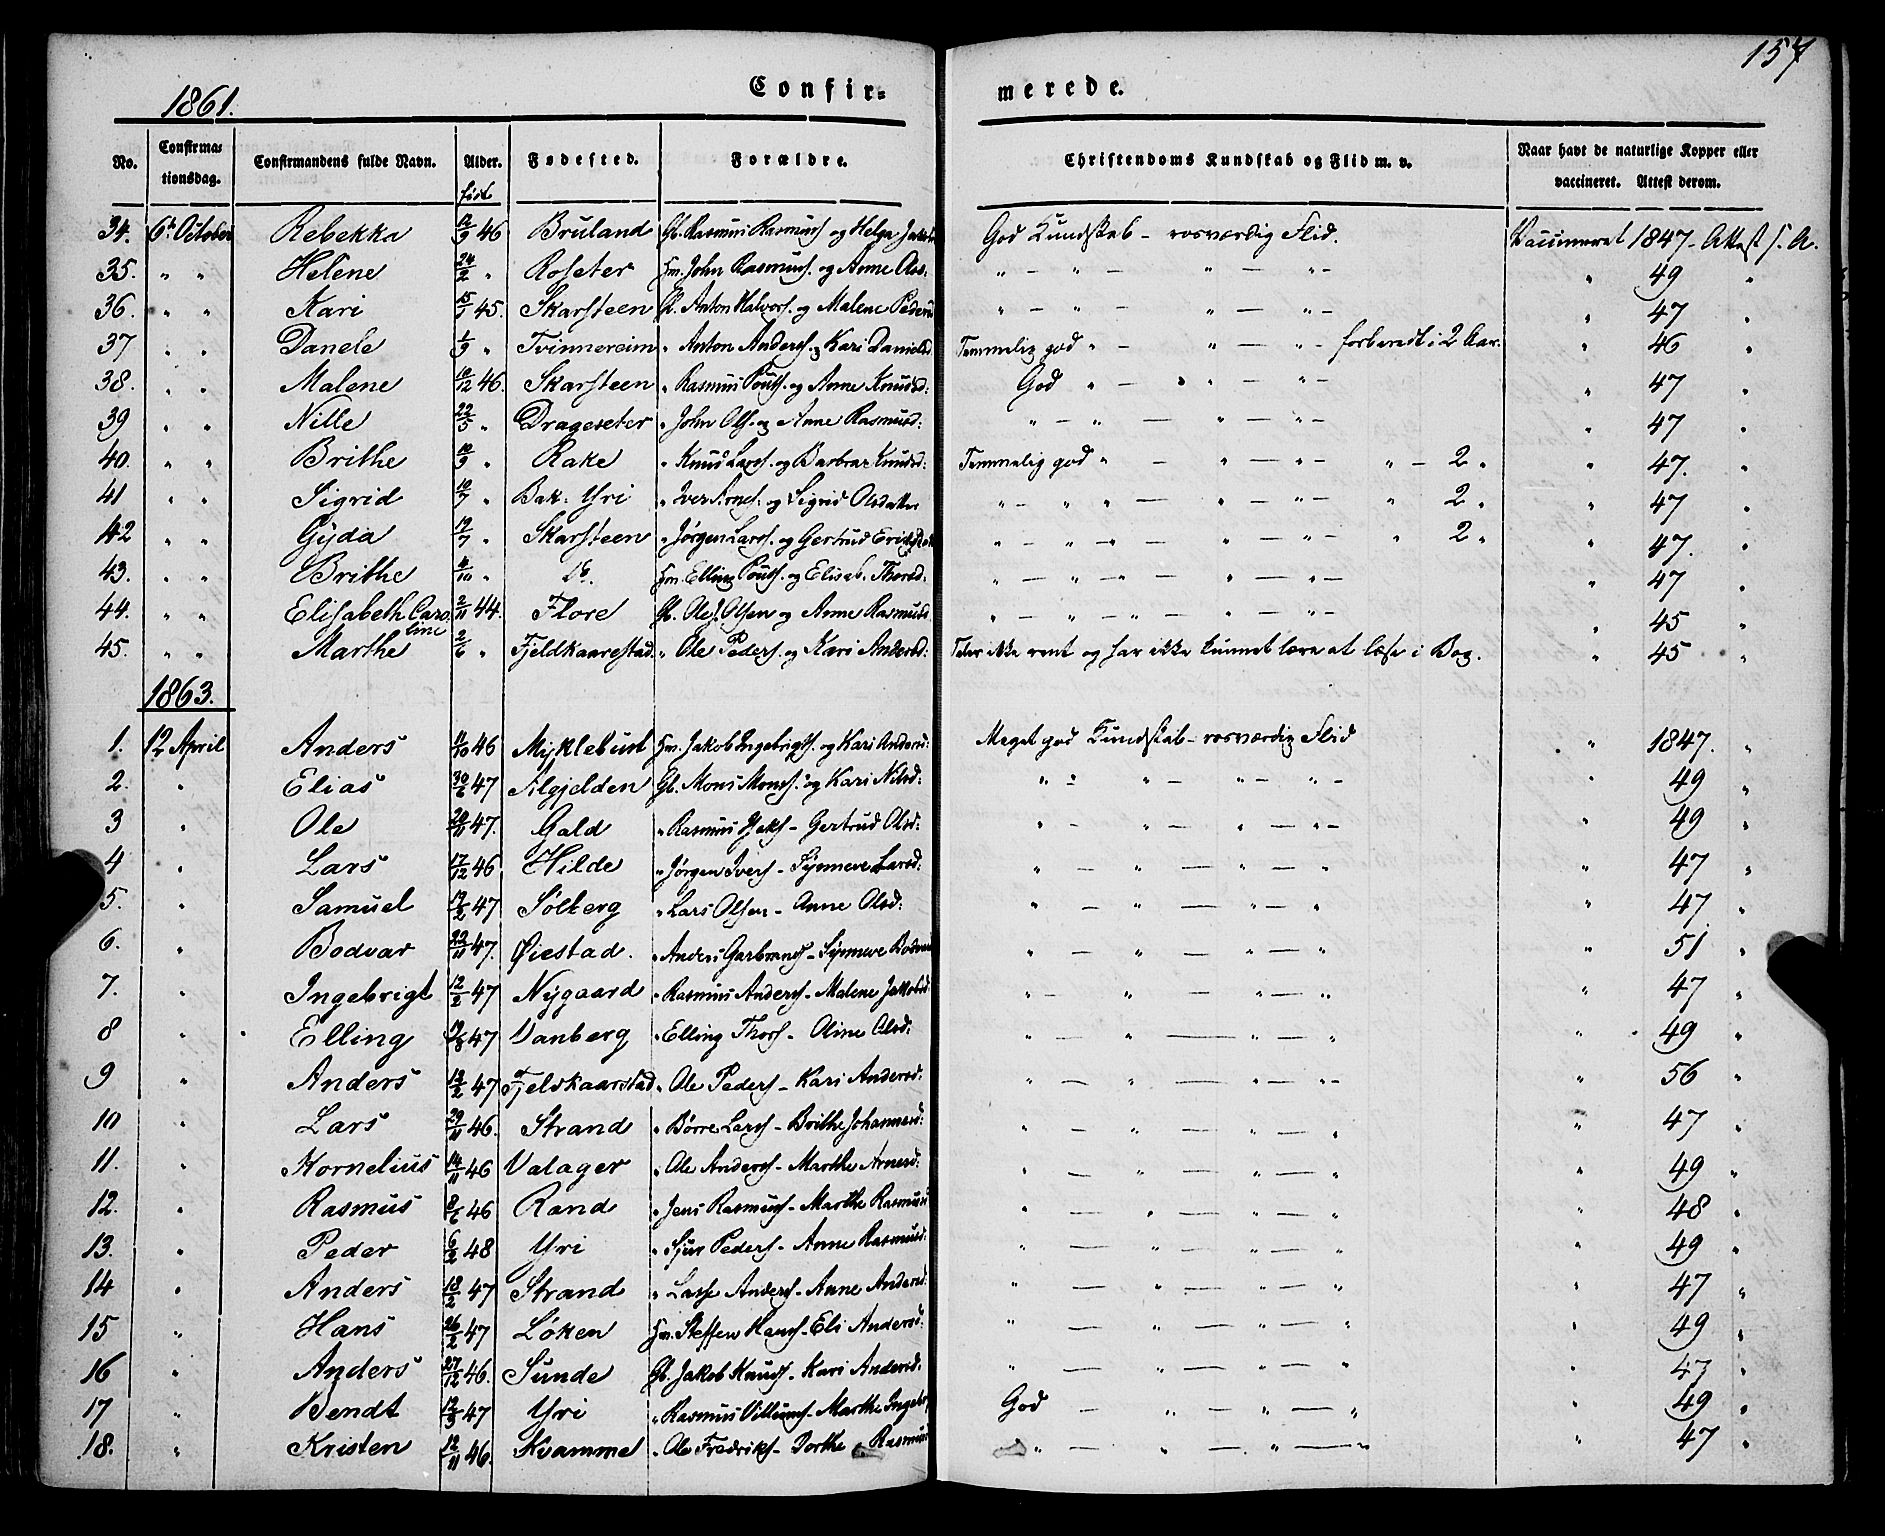 157
1861.
Confir- merede.
No. Confirmationsdag. Confirmandens fulde Navn. Alder. født Fødested. Forældre. Christendoms Kundskab og Flid m. v. Naar havt de naturlige Kopper eller vaccineret. Attest derom.
34. 6te October Rebekka 12/9 46 Bruland Gb. Rasmus Rasmuss og Helga God Kundskab – rosværdig Flid. Vaccineret 1847 – Attest s. A.
35. " " Helene 24/2 " Roseter Hm. John Rasmuss. og Anne Ols: " – " – " – " – " 49 "
36. " " Kari 15/5 45. Skarsteen Gb. Anton Halvors. og Malene Peders " – " – " – " – " 47 "
37 " " Danele 1/9 " Tvinnereim " Anton Anderss. og Kari Danielsd. Temmelig god " – " – " – forberedt i 2 Aar. " 46 "
38. " " Malene 10/12 46. Skarsteen " Rasmus Pouls. og Anne Knudsd: God " – " " – " – " 47 "
39 " " Nille 22/5 " Drageseter " John Ols. og Anne Rasmusd: " – " – " – " – " 47 "
40. " " Brithe 10/9 " Rake " Knud Larss. og Barbra Knudsd: Temmelig god " – " – " – " – 2 " " 47. "
41 " " Sigrid 10/7 " Bak: Yri " Iver Arnes. og Sigrid Olsdatter " – " " – " – " – " 2 " " 47 "
42 " " Gyda 19/7 " Skarsteen " Jørgen Larss. og Gertrud " – " – " – " – " – " 2 " " 47. "
43. " " Brithe 4/10 " Do. Hm. Elling Pouls. og Elisab. Thorsd: " – " – " – " – " – " 47 "
44. " " Elisabeth Caroline 2/11 44. Flore Gb. Ole J. Olsen og Anne Rasmusd " – " – " – " – " – " 45 "
45. " " Marthe 2/6 " Fjeldkaarestad. " Ole Peders. og Kari Andersd: Taler ikke rent og har ikke kunnet lære at læse i Bog. " 45 "
1863.
1. 12 April Anders 11/10 46 Myklebust Hm. Jakob Ingebrigts. og Kari Andersd: Meget god Kundskab – rosværdig Flid " 1847. "
2. " Elias 30/6 47 Tilgjelden Gb. Mons Monss. og Kari Nilsd: " – " – " – " – " 49 "
3 " Ole 20/11 47. Gald " Rasmus – Gertrud Olsd: " – " – " – " – " 49 "
4 " Lars 17/12 46 Hilde " Jørgen Ivers – Synneve Larsd: " – " – " – " – " 47 "
5. " Samuel 17/2 47 Solberg " Lars Olsen – Anne Olsd: " – " – " – " " 47 "
6. " Bodvar 23/11 47. Øiestad. " Anders Garbrands – Synneve " – " – " – " " 51 "
7. " Ingebrigt 12/2 47 Nygaard " Rasmus Anderss – Malene Jakobsd: " – " – " – " " 47 "
8 " Elling 19/8 47 Vanberg " Elling Thors – Oline Olsd: " – " – " – " " 49 "
9 " Anders 13/2 47 Fjelskaarstad " Ole Peders – Kari Andersd: " – " – " – " – " 56 "
10 " Lars 29/11 46. Strand " Børre Larss – Brithe Johannesd: " – " – " – " " 47 "
11. " Kornelius 14/11 46 Valager " Ole Anderss – Marthe Arnesd: " – " – " – " " 49 "
12. " Rasmus 8/6 46 Rand " Jens Rasmuss – Marthe Rasmusd " – " – " – " " 48 "
13. " Peder 6/2 48 Yri " Sjur Peders – Anne Rasmusd: " – " – " – " " 49 "
14 " Anders 18/2 47 Strand " Lasse Anderss – Anne Andersd: " – " – " – " " 47 "
15 " Hans 26/2 47 Løken Hm. Steffen Hanss – Eli Andersd: " – " – " – " " 49 "
16 " Anders 27/12 46. Sunde Gb. Jakob Knuds – Kari Andersd: " – " – " – " " 47 "
17 " Bendt 12/3 47 Yri " Rasmus Villums – Marthe God – " – " – " " 49 "
18. " Kristen 12/11 46. Kvammel " Ole Fredriks – Dorthe Rasmusd " – " – " – " " 47 "